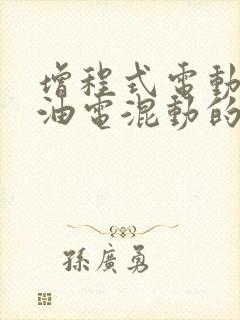 增程式電動
油電混動的
孫廣勇